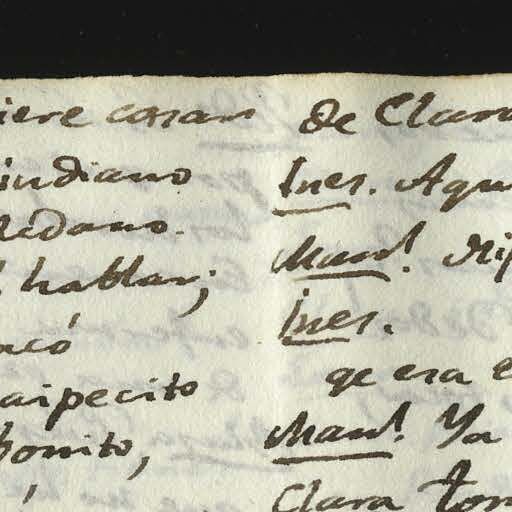 iere casar
indiano
ledano.
hablar;
acó
aipecito
bonito,
de Clara
Ines. Aqu
Man.l
Ines.
qe era e
Man.l Ya
Clara